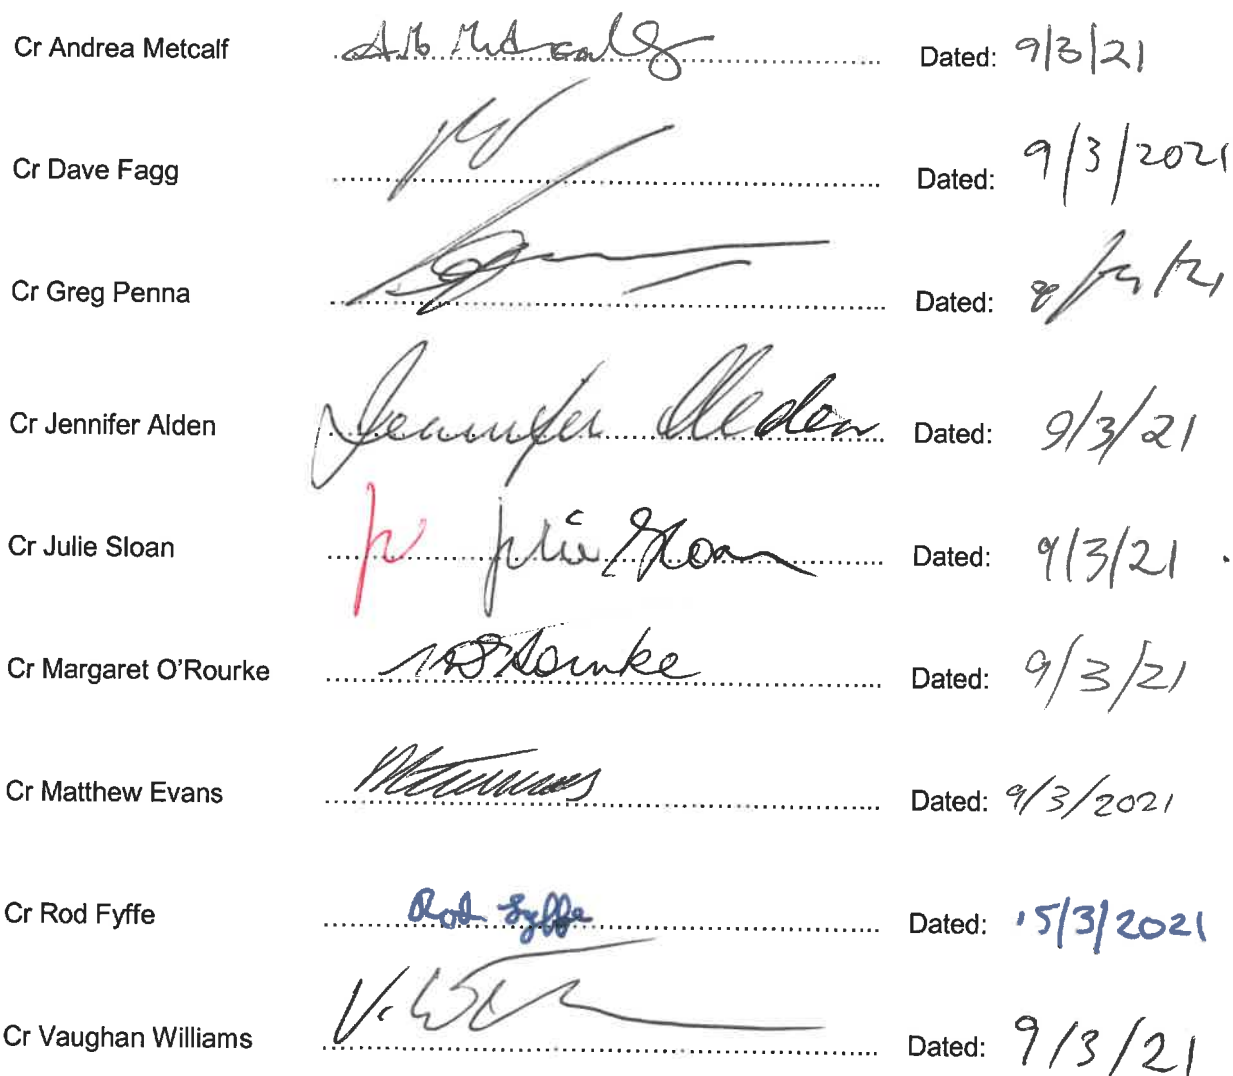 Cr Andrea Metcalf A.M. Metcalf Dated: 9/3/21
Cr Dave Fagg Dated: 9/3/2021
Cr Greg Penna Dated:
Cr Jennifer Alden Jennifer Alden Dated: 9/3/21
Cr Julie Sloan Julie Sloan Dated: 9/3/21
Cr Margaret O'Rourke O'Rourke Dated: 9/3/21
Cr Matthew Evans Dated: 9/3/2021
Cr Rod Fyffe Rod Fyffe Dated: 15/3/2021
Cr Vaughan Williams V. Dated: 9/3/21